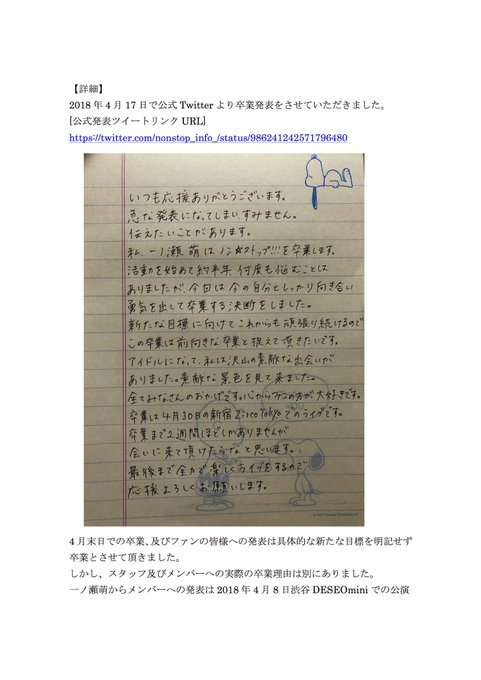 【詳細】
2018 年 4 月 17 日で公式 Twitter より卒業発表をさせていただきました。
[公式発表ツイートリンク URL]
https://twitter.com/nonstop_info_/status/986241242571796480
いつも応援ありがとうございます。
急な発表になってしまいすみません。
伝えたいことがあります。
私、一ノ瀬萌はノン☆ストップ!!!を卒業します。
活動を始めて約半年、何度も悩むことは
ありましたが、今回は今の自分としっかり向き合い
勇気を出して卒業する決断をしました。
新たな目標に向けてこれからも頑張り続けるので
この卒業は前向きな卒業と捉えて頂きたいです。
アイドルになって、私は沢山の素敵な出会いが
ありました。素敵な景色を見て来ました。
全てみなさんのおかげです。心からファンの方が大好きです。
卒業は4月30日の新宿ZircoTokyoでのライブです。
卒業まで2週間ほどしかありませんが
会いに来て頂けたらなと思います。
最後まで全力で楽しくライブをするので
応援よろしくお願いします。
4 月末日での卒業、及びファンの皆様への発表は具体的な新たな目標を明記せず
卒業とさせて頂きました。
しかし、スタッフ及びメンバーへの実際の卒業理由は別にありました。
一ノ瀬萌からメンバーへの発表は 2018 年 4 月 8 日渋谷 DESEOmini での公演